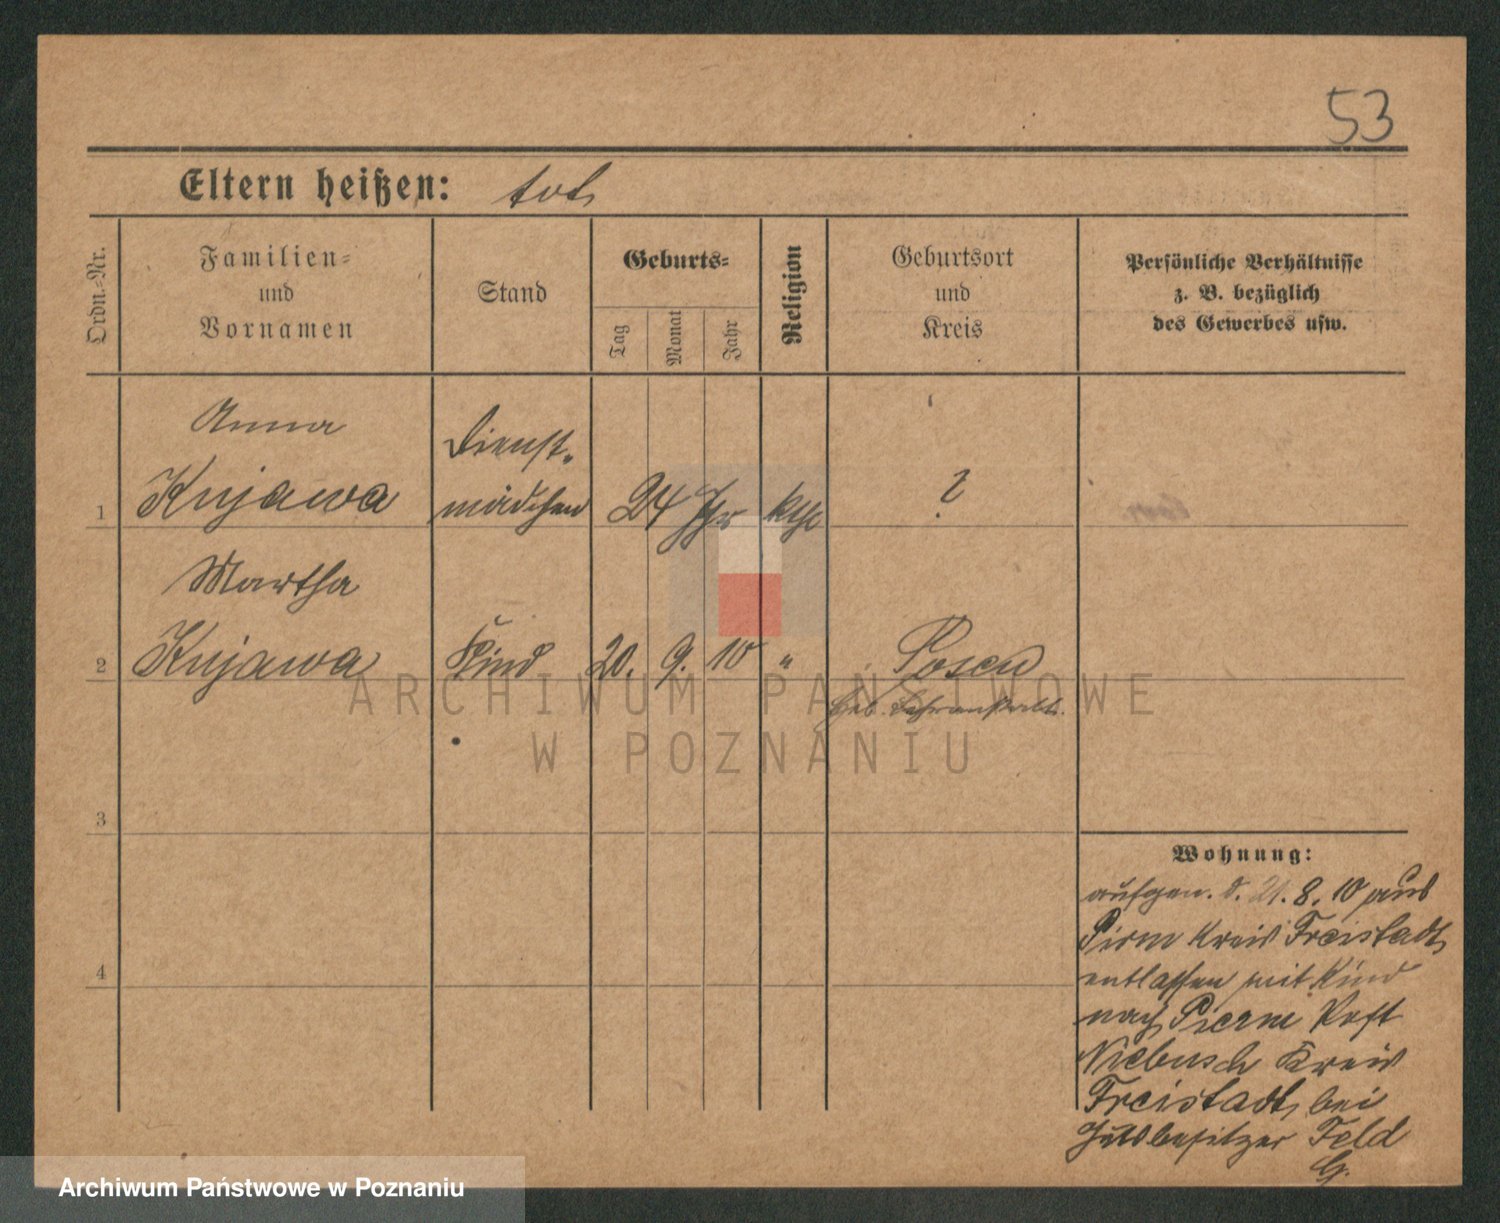 53
Eltern heißen: tot
Ordn.-Nr.
Familien-
und
Vornamen
Stand
Geburts-
Tag
Monat
Jahr
Religion
Geburtsort
und
Kreis
Persönliche Verhältnisse
z. B. bezüglich
des Gewerbes usw.
Anna
Kujawa
Dienst-
mädchen
1
24 Jhr
kth
?
Martha
2
Kujawa
Kind
20.
9.
10
"
Posen
Heb. Lehranstalt.
3
4
Wohnung:
aufgen. d. 21. 8. 10 aus
Kreis Freistadt
entlassen mit Kind
nach Post
Niebusch Kreis
Freistadt, bei
Gutsbesitzer Feld
G.
ARCHIWUM PAŃSTWOWE
W POZNANIU
Archiwum Państwowe w Poznaniu